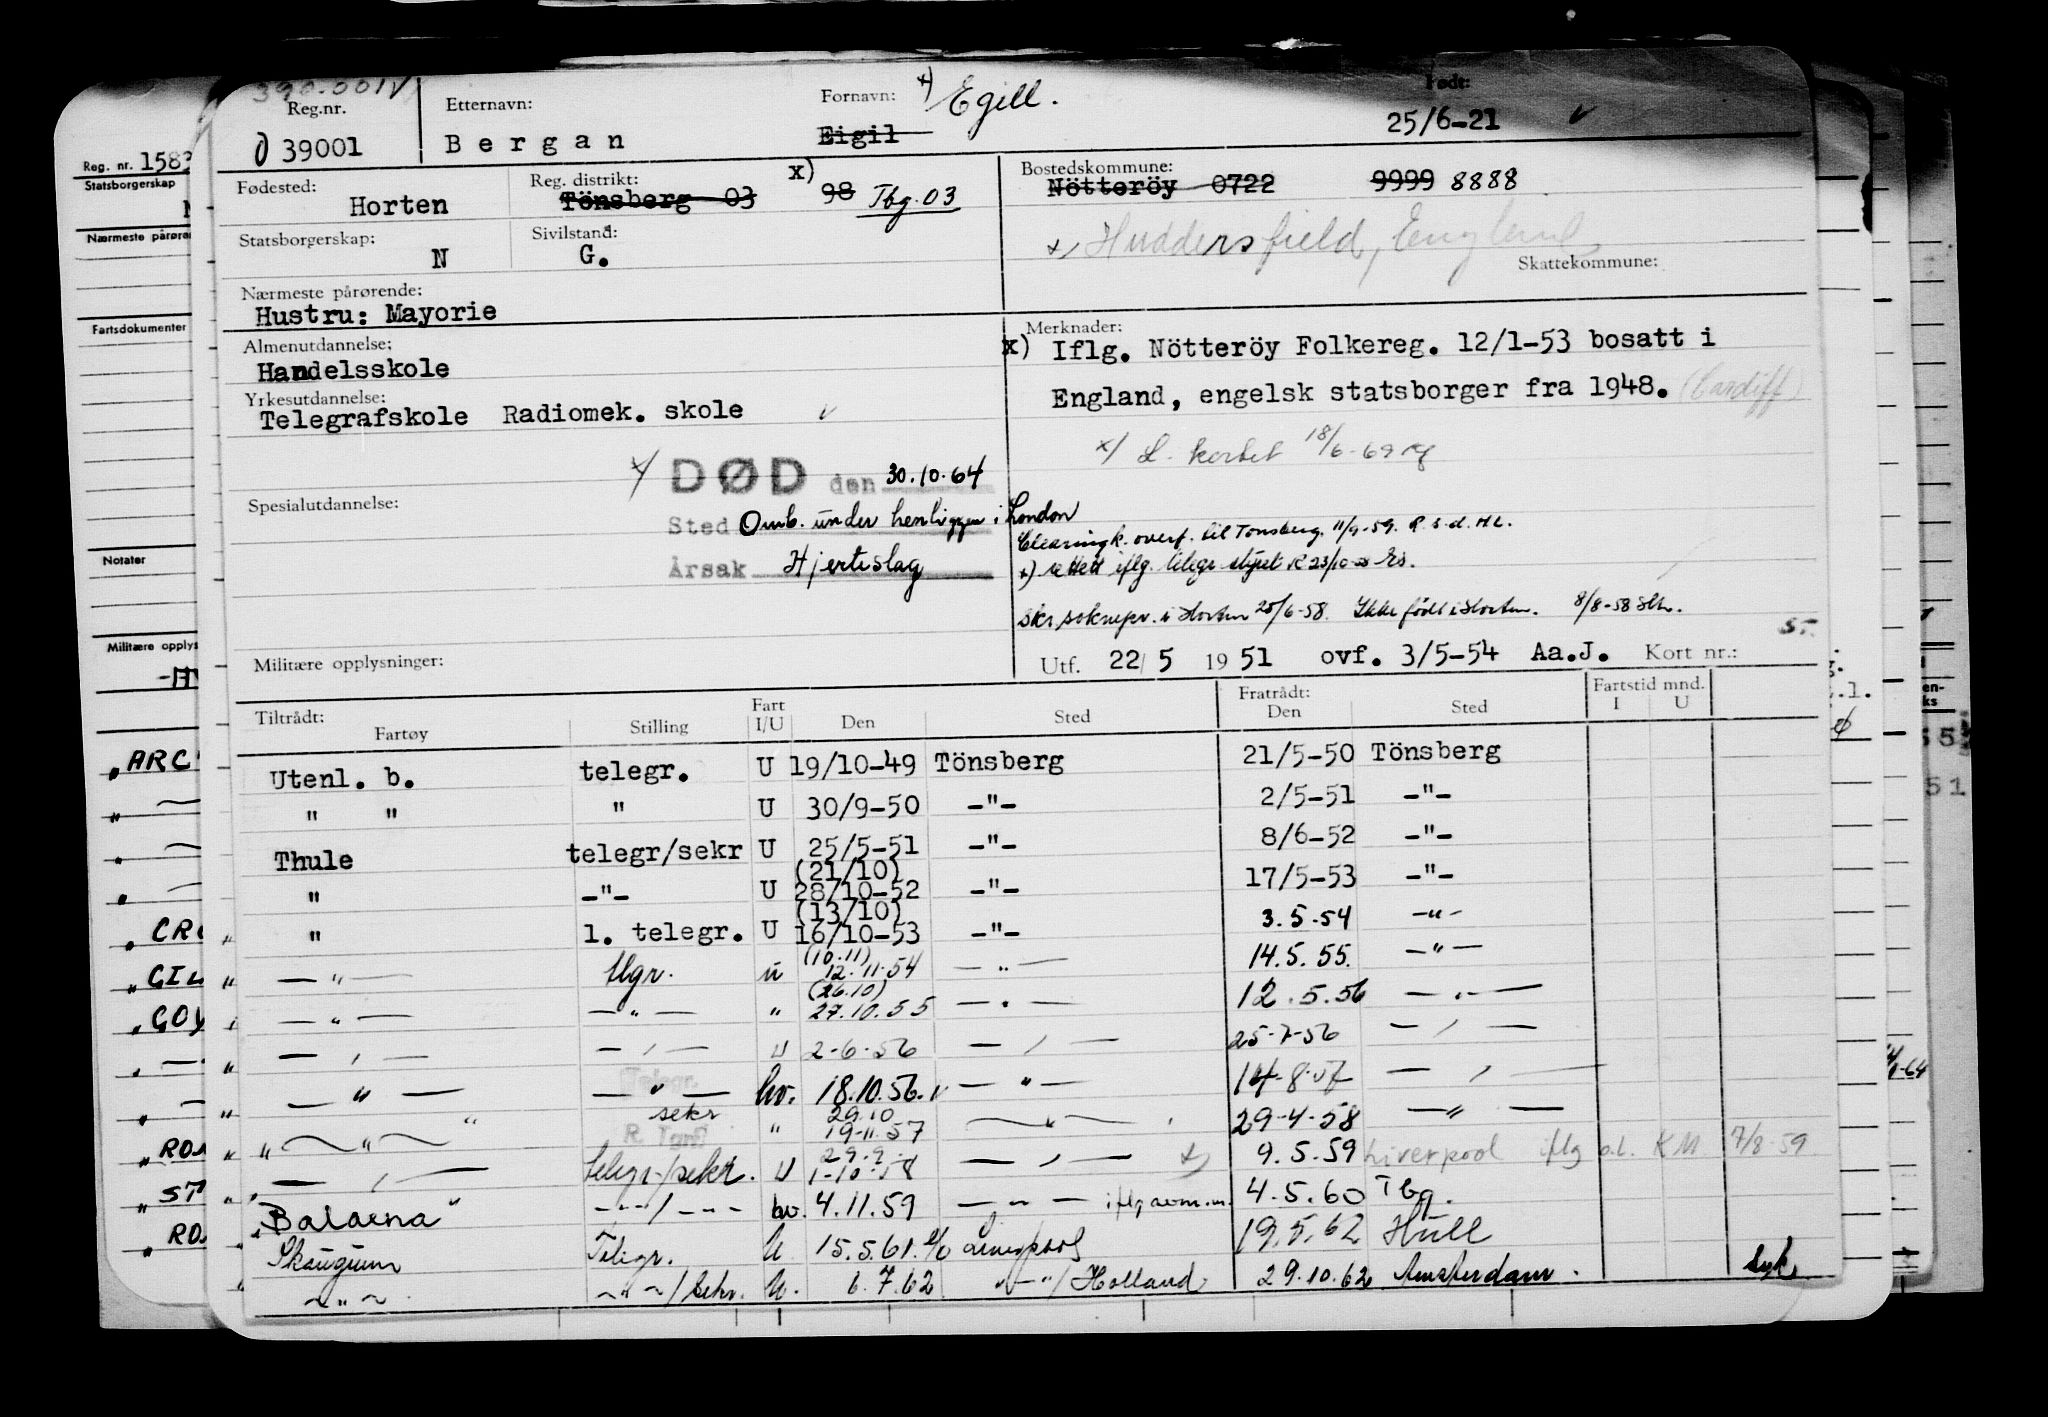 390.001V
Reg.nr.
39001
Etternavn:
Bergan
Fornavn:
Eigil
x) Egill.
Født:
25/6-21
Fødested:
Horten
Reg. distrikt:
Tönsberg 03
x)
98 Tbg. 03
Bostedskommune:
Nötteröy 0722
9999 8888
x) Huddersfield, England
Skattekommune:
Statsborgerskap:
N
Sivilstand:
G.
Nærmeste pårørende:
Hustru: Mayorie
Almenutdannelse:
Handelsskole
Yrkesutdannelse:
Telegrafskole Radiomek. skole
Merknader:
x) Iflg. Nötteröy Folkereg. 12/1-53 bosatt i
England, engelsk statsborger fra 1948. (Cardiff)
x) L. kortet 18/6-69
x) DØD den 30.10.64
Sted Omb. under henliggen i London
Årsak Hjerteslag
Spesialutdannelse:
Clearingk. overf. til Tönsberg. 11/9-59.
x) rettet iflg. telegr. styret
skr. soknepr. i Horten 25/6-58. Ikke födt i Horten. 8/8-58
Militære opplysninger:
Utf. 22/5 1951 ovf. 3/5-54 Aa.J. Kort nr.:
Tiltrådt:
Fartøy
Stilling
Fart
I/U
Den
Sted
Fratrådt:
Den
Sted
Fartstid mnd.
I U
Utenl. b. telegr. U 19/10-49 Tönsberg 21/5-50 Tönsberg
" " " U 30/9-50 -"- 2/5-51 -"-
Thule telegr/sekr U 25/5-51 -"- 8/6-52 -"-
(21/10)
" -"- U 28/10-52 -"- 17/5-53 -"-
(13/10)
" 1. telegr. U 16/10-53 -"- 3.5.54 -"-
(10.11)
-"- tlgr. u 12.11.54 -"- 14.5.55. -"-
(26.10)
-"- -"- " 27.10.55 -"- 12.5.56 -"-
-"- -"- U 2-6-56 -"- 25-7-56 -"-
Telegr.
-"- -"- hv. 18.10.56. -"- 14-8-57 -"-
sekr 29.10
-"- " 19-11.57 -"- 29-4-58 -"-
29.9
-"- telegr/sekr. U 1-10-58 -"- x) 9.5.59 Liverpool iflg o.l. KM 7/8-59
"Balaena" -"-/-"- hv. 4.11.59 -"- iflg avm.m. 4.5.60 Tbg.
Skaugum Telegr. U. 15.5.61. Liverpool 19.5.62 Hull
-"- -"-/sekr. U. 6.7.62 -"-/Holland 29.10.62 Amsterdam. syk
Reg. nr. 1583
Statsborgerskap
Nærmeste pårøren
Fartsdokumenter
Notater
Militære opplys
"ARC
CRO
"GIL
"GOY
"ROS
"ST
"RO